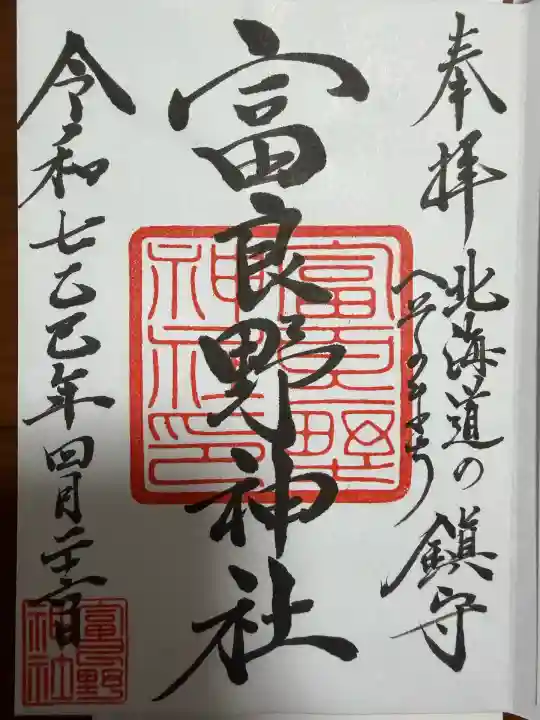 奉拝
北海道の
へそのまち
鎮守
富良野神社
富良野神社印
令和七乙巳年四月二十六日
富良野神社